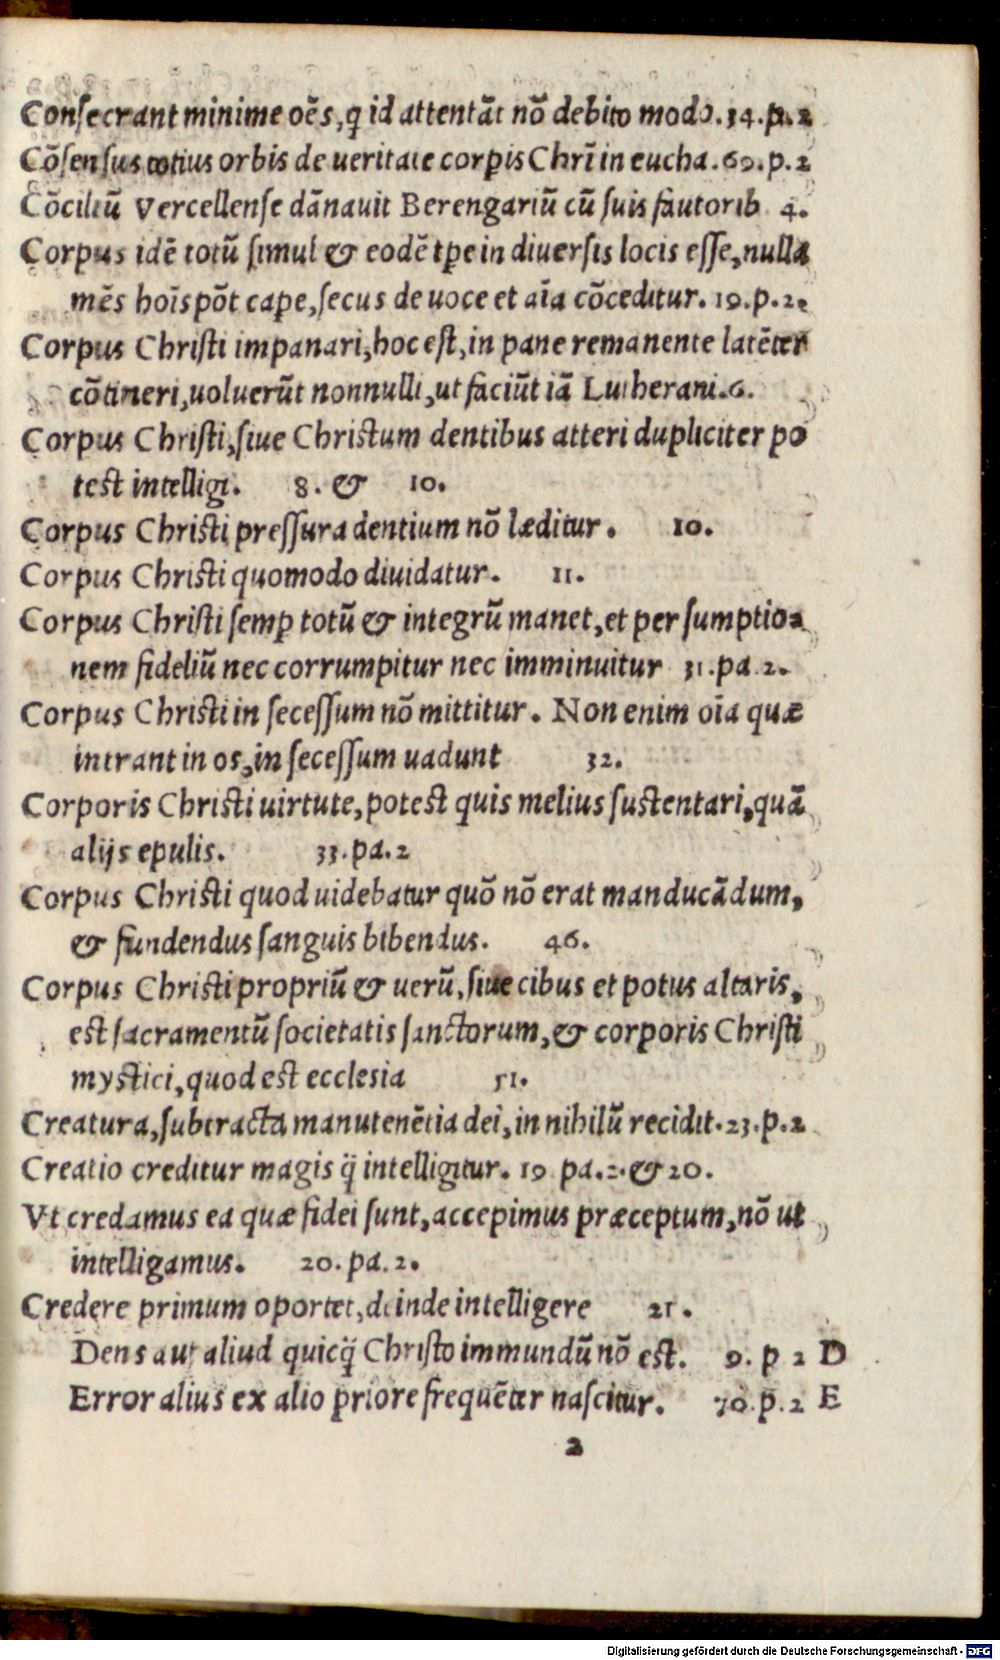 Conſecrant minime oēs, q id attentāt nō debito modo. 34. pa. 2
Cōſenſus totius orbis de ueritate corꝑis Chrī in eucha. 69. p. 2
Cōciliū Vercellenſe dānauit Berengariū cū ſuis fautorib 4.
Corpus idē totū ſimul & eodē tꝑe in diuerſis locis eſſe, nulla
mēs hoīs pōt capꝑe, ſecus de uoce et aīa cōceditur. 19. p. 2.
Corpus Chriſti impanari, hoc eſt, in pane remanente latēter
cōtineri, uoluerūt nonnulli, ut faciūt iā Lutherani. 6.
Corpus Chriſti, ſiue Chriſtum dentibus atteri dupliciter po
teſt intelligi. 8. & 10.
Corpus Chriſti preſſura dentium nō læditur. 10.
Corpus Chriſti quomodo diuidatur. 11.
Corpus Chriſti ſemꝑ totū & integrū manet, et per ſumptio⸗
nem fideliū nec corrumpitur nec imminuitur 31. pa. 2.
Corpus Chriſti in ſeceſſum nō mittitur. Non enim oīa quæ
intrant in os, in ſeceſſum uadunt 32.
Corporis Chriſti uirtute, poteſt quis melius ſuſtentari, quā
alijs epulis. 33. pa. 2
Corpus Chriſti quod uidebatur quō nō erat manducādum,
& fundendus ſanguis bibendus. 46.
Corpus Chriſti propriū & uerū, ſiue cibus et potus altaris,
eſt ſacramentū ſocietatis ſanctorum, & corporis Chriſti
myſtici, quod eſt eccleſia 51.
Creatura, ſubtracta manutenētia dei, in nihilū recidit. 23. p. 2
Creatio creditur magis q̄ intelligitur. 19 pa. 2. & 20.
Vt credamus ea quæ fidei ſunt, accepimus præceptum, nō ut
intelligamus. 20. pa. 2.
Credere primum oportet, deinde intelligere 21.
Dens aut aliud quicq̄ Chriſto immundū nō eſt. 9. p 2 D
Error alius ex alio priore frequēter naſcitur. 70. p. 2 E
2
Digitalisierung gefördert durch die Deutsche Forschungsgemeinschaft - DFG